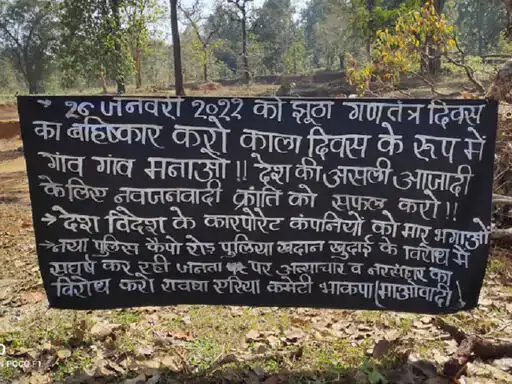 → 26 जनवरी 2022 को झूठा गणतंत्र दिवस
का बहिष्कार करो काला दिवस के रूप में
गांव गांव मनाओ !! देश की असली आजादी
के लिए नवजनवादी क्रांति को सफल करो !!
→ देश विदेश के कारपोरेट कंपनियों को मार भगाओ
→ नया पुलिस कैंपो रोड पुलिया खदान खुदाई के विरोध में
संघर्ष कर रही जनता पर अत्याचार व नरसंहार का
विरोध करो एरिया कमेटी भाकपा (माओवादी)
POCO F1